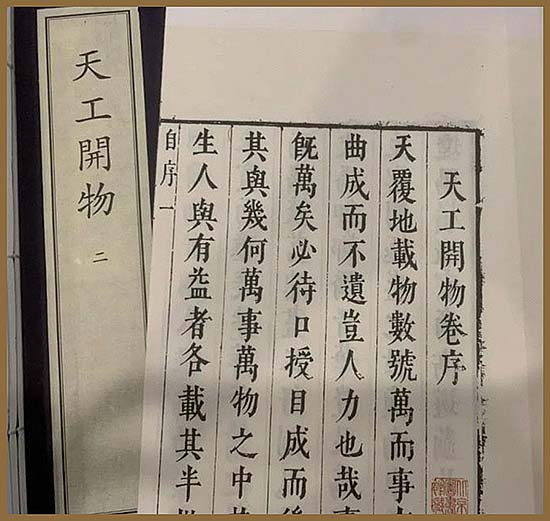 天工開物
二
天工開物卷序
天覆地載物數號萬而事
曲成而不遺豈人力也哉事
旣萬矣必待口授目成而後
其與幾何萬事萬物之中
生人與有益者各載其半
自序一